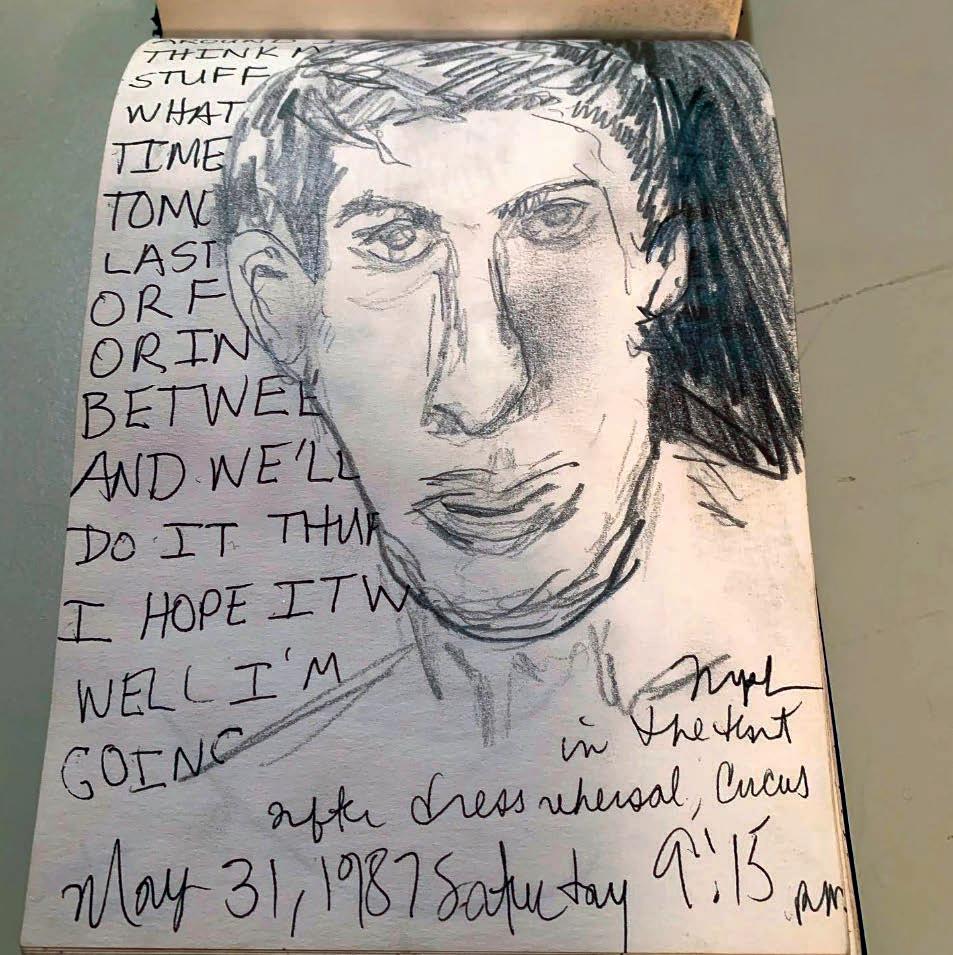 AROUND
THINK M
STUFF
WHAT
TIME
TOMO
LAST
OR F
OR IN
BETWEE
AND WE'LL
DO IT THUR
I HOPE IT W
WELL I'M
GOING
in the tent
after dress rehersal, Circus
May 31, 1987 Saturday 9:15 p.m.